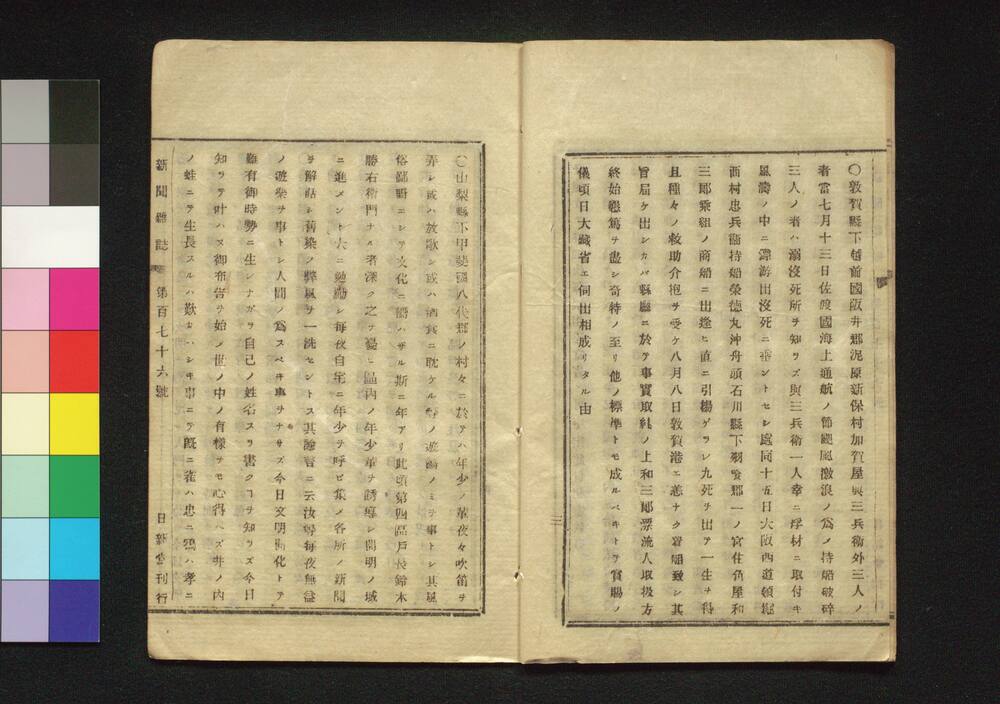 〇敦賀縣下越前國阪井郡泥原新保村加賀屋與三兵衛外三人ノ
者當七月十三日佐渡國海上通航ノ節颶風激浪ノ爲メ持船破碎
三人ノ者ハ溺沒死所ヲ知ラズ與三兵衛一人幸ニ浮材ニ取付キ
風濤ノ中ニ漂游出沒死ニ垂ントセシ處同十五日大阪西道頓堀
西村忠兵衛持船榮德丸沖舟頭石川縣下羽喰郡一ノ宮住角屋和
三郎乘組ノ商船ニ出逢ヒ直ニ引揚ゲラレ九死ヲ出テ一生ヲ得
且種々ノ救助介抱ヲ受ケ八月八日敦賀港エ恙ナク着船致シ其
旨届ケ出シカバ縣廳ニ於テ事實取糺ノ上和三郎漂流人取扱方
終始懇篤ヲ盡シ奇特ノ至リ他ノ標準トモ成ルベキトテ賞賜ノ
儀頃日大藏省エ伺出相成リタル由
三
〇山梨縣下甲斐國八代郡ノ村々ニ於テハ年少ノ輩夜々吹笛ヲ
弄シ或ハ放歌シ或ハ酒食ニ耽ケル等ノ遊蕩ノミヲ事トシ其風
俗鄙野ニシテ文化ニ浴ハザル斯ニ年アリ此頃第四區戸長鈴木
勝右衛門ナル者深ク之ヲ憂ヒ區内ノ年少輩ヲ誘導シ開明ノ域
ニ進メント大ニ勉勵シ毎夜自宅ニ年少ヲ呼ビ集メ各所ノ新聞
ヲ解話シ舊染ノ弊風ヲ一洗セントス其諭言ニ云汝等毎夜無益
ノ遊樂ヲ事トシ人間ノ爲スベキ事ヲナサズ今日文明開化トテ
難有御時勢ニ生レナガラ自己ノ姓名スラ書クコヲ知ラズ今日
知ラデ叶ハヌ御布告ヲ始メ世ノ中ノ有樣ヲモ心得ヘズ井ノ内
ノ蛙ニテ生長スルハ歎カハシキ事ニテ既ニ雀ハ忠ニ鴉ハ孝ニ
新聞雜誌 第百七十六號 日新堂刊行